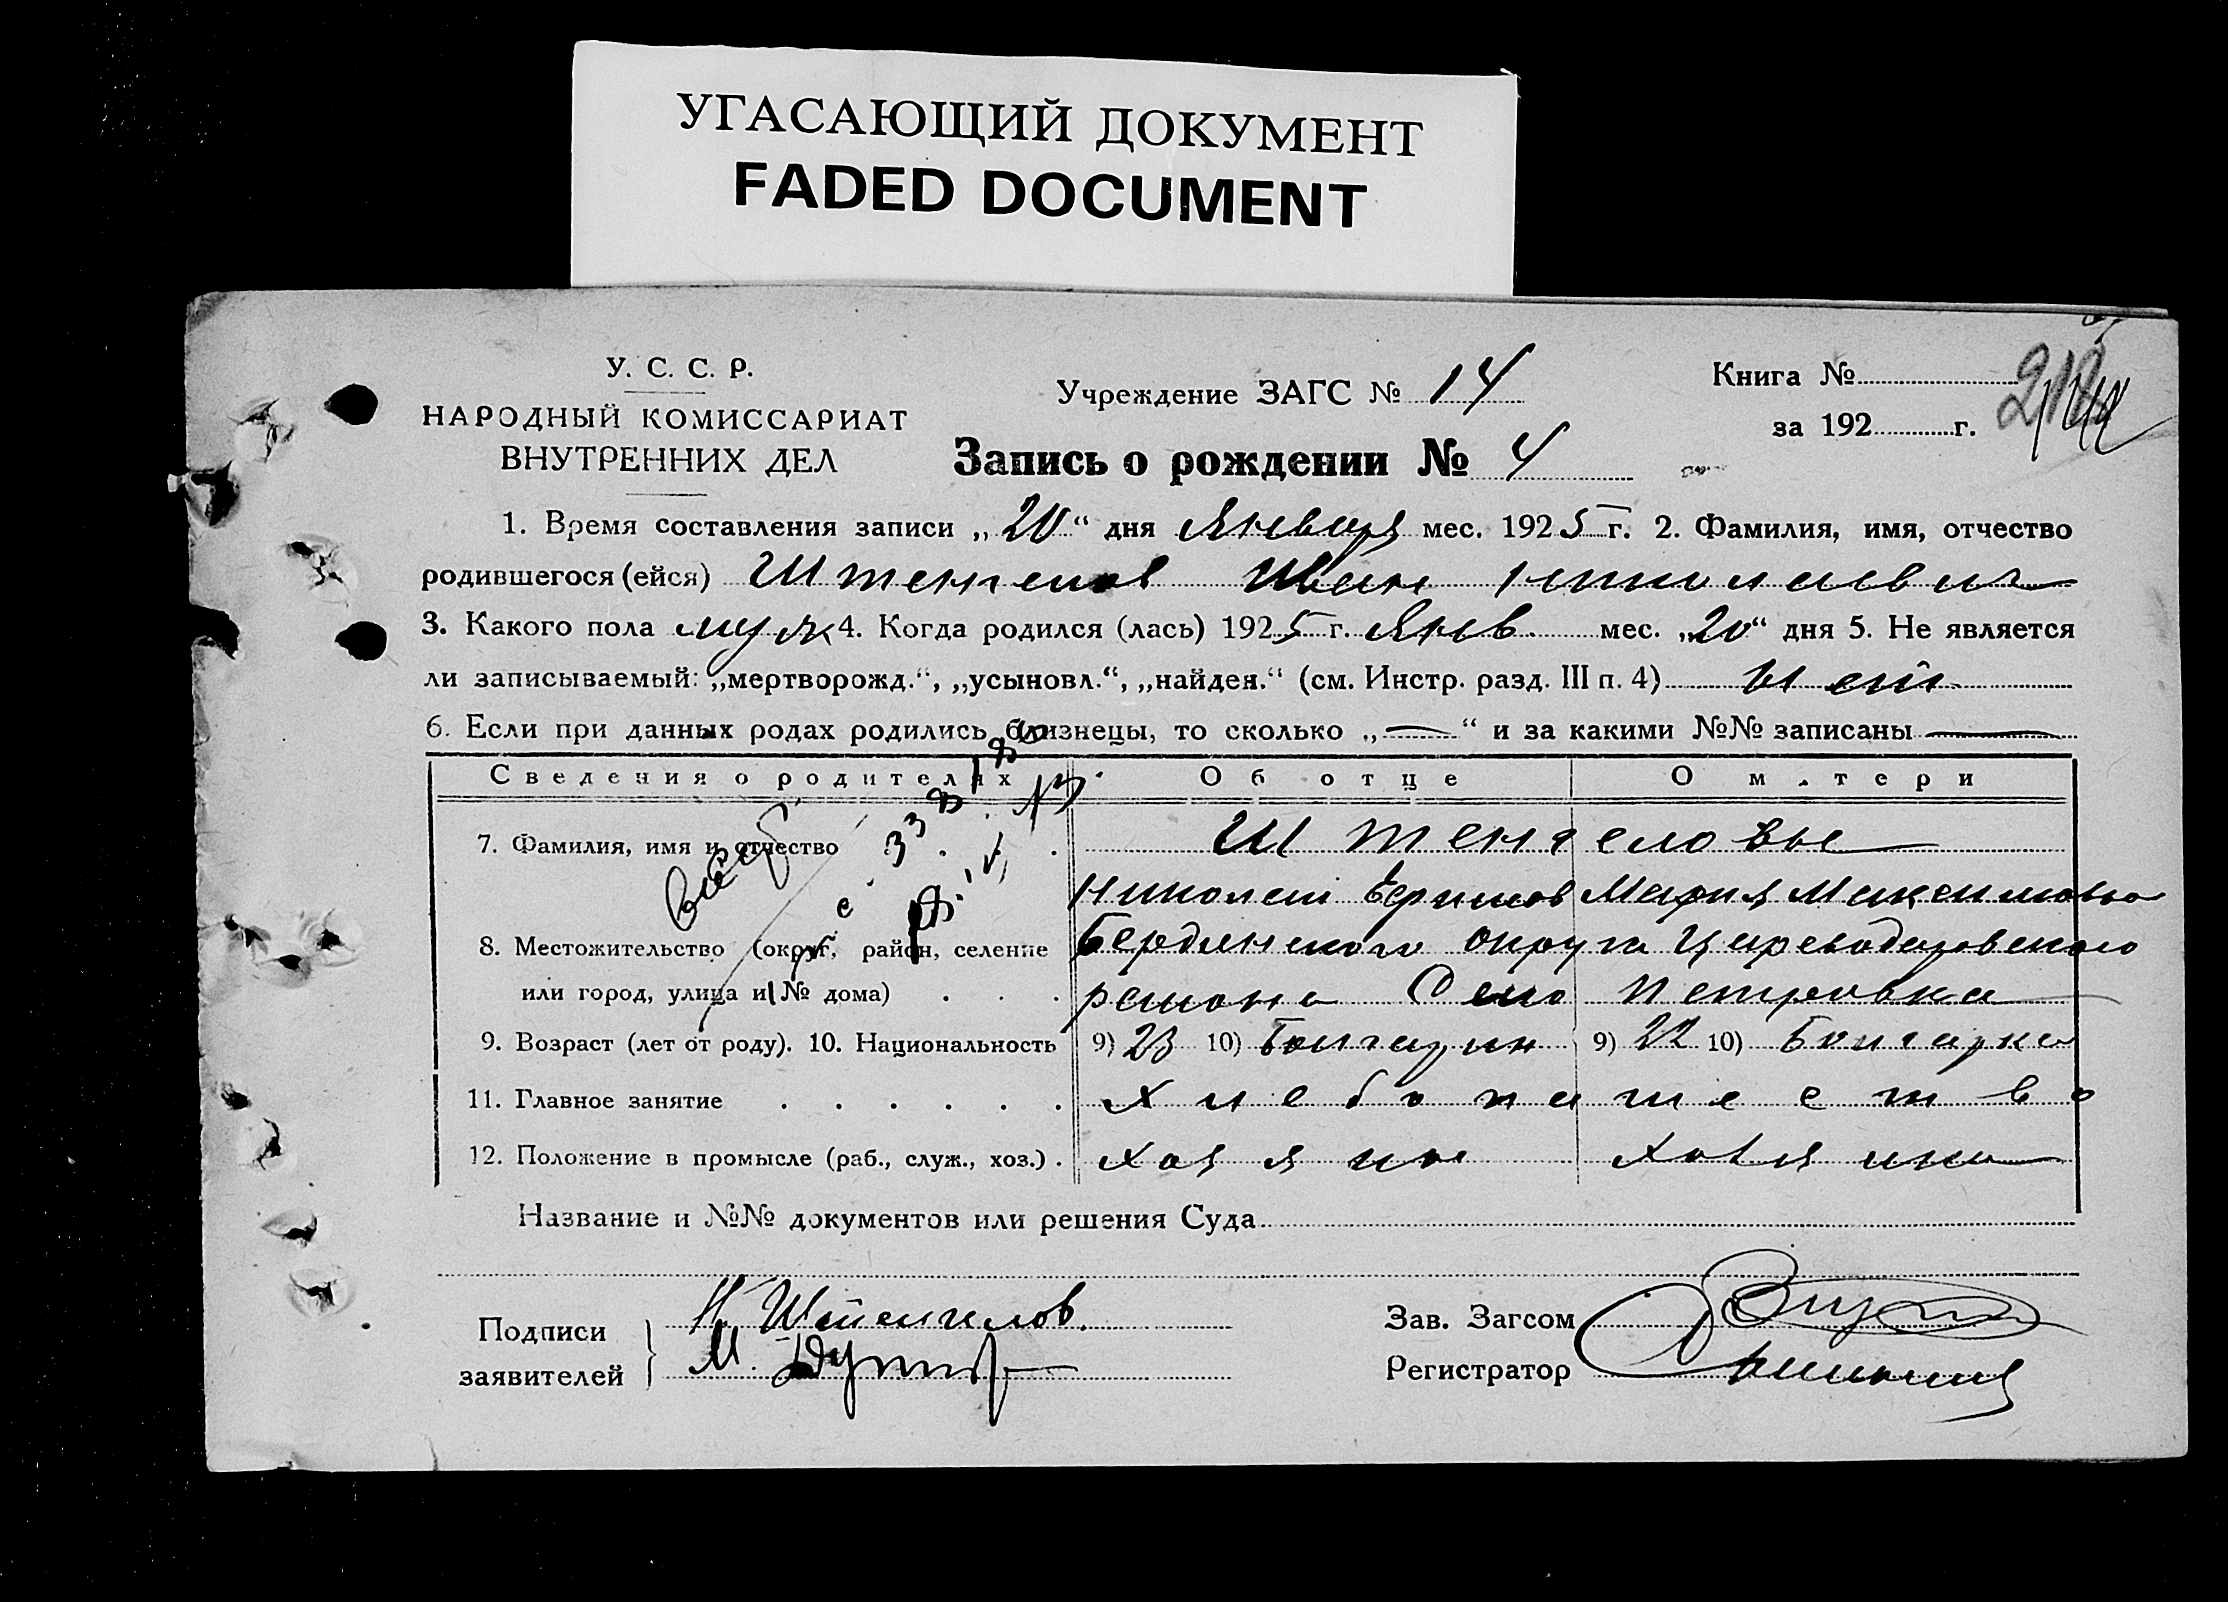 УГАСАЮЩИЙ ДОКУМЕНТ
FADED DOCUMENT
У. С. С. Р.
НАРОДНЫЙ КОМИССАРИАТ
ВНУТРЕННИХ ДЕЛ
Учреждение ЗАГС № 14
Книга №
за 192 г.
Запись о рождении № 4
1. Время составления записи „20“ дня Января мес. 1925 г. 2. Фамилия, имя, отчество
родившегося (ейся) Штенгелов Иван Николаевич
3. Какого пола муж 4. Когда родился (лась) 1925 г. Янв. мес. „20“ дня 5. Не является
ли записываемый: „мертворожд.“, „усыновл.“, „найден.“ (см. Инстр. разд. III п. 4) Нет
6. Если при данных родах родились близнецы, то сколько „—“ и за какими №№ записаны —
Сведения о родителях Об отце О м.тери
7. Фамилия, имя и отчество Штенгеловы
Николай Мария Максимовна
8. Местожительство (округ, район, селение Бердянского округа Цареводаровского
или город, улица и № дома) района Село Петровка
9. Возраст (лет от роду). 10. Национальность 9) 23 10) Болгарин 9) 22 10) Болгарка
11. Главное занятие Хлебопашество
12. Положение в промысле (раб., служ., хоз.) Хозяин Хозяика
Название и №№ документов или решения Суда
Подписи заявителей
Н. Штенгелов.
М.
Зав. Загсом
Регистратор